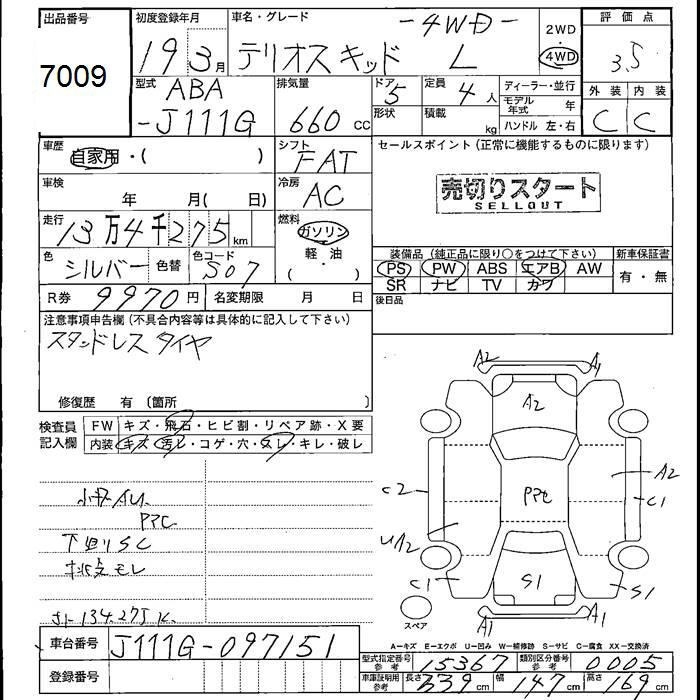 出品番号 初度登録年月 車名・グレード -4WD- 2WD・4WD 評価点
7009 19 3月 テリオスキッド L 3.5
型式 ABA 排気量 ドア 5 定員 4人 ディーラー・並行 外装 内装
-J111G 660cc 形状 積載 kg モデル年式 年 C C
ハンドル 左・右
車歴 自家用・( ) シフト FAT セールスポイント(正常に機能するものに限ります)
車検 年 月( 日) 冷房 AC 売切りスタート
SELLOUT
走行 13万4千275km 燃料 ガソリン
軽・油
・( )
色 シルバー 色替 色コード S07
装備品(純正品に限り○をつけて下さい) 新車保証書
PS PW ABS エアB AW 有・無
SR ナビ TV カワ
R券 9970円 名変期限 月 日 後日品
注意事項申告欄(不具合内容等は具体的に記入して下さい)
スタッドレス タイヤ
修復歴 有 (箇所 )
検査員記入欄 FW キズ・飛石・ヒビ割・リペア跡・X要
内装 キズ・汚レ・コゲ・穴・スレ・キレ・破レ
小キズAU
PアC
下回りSC
モレ
134.275K.
A2 A1
A2
C2 Pアセ A2
C1
UA2
C1 S1 S1
スペア A1 A1
車台番号 J111G-097151
登録番号
A-キズ E-エクボ U-凹み W-補修跡 S-サビ C-腐食 XX-交換済
型式指定番号参考 15367 類別区分番号参考 0005
車庫証明用参考 長さ 339cm 幅 147cm 高さ 169cm